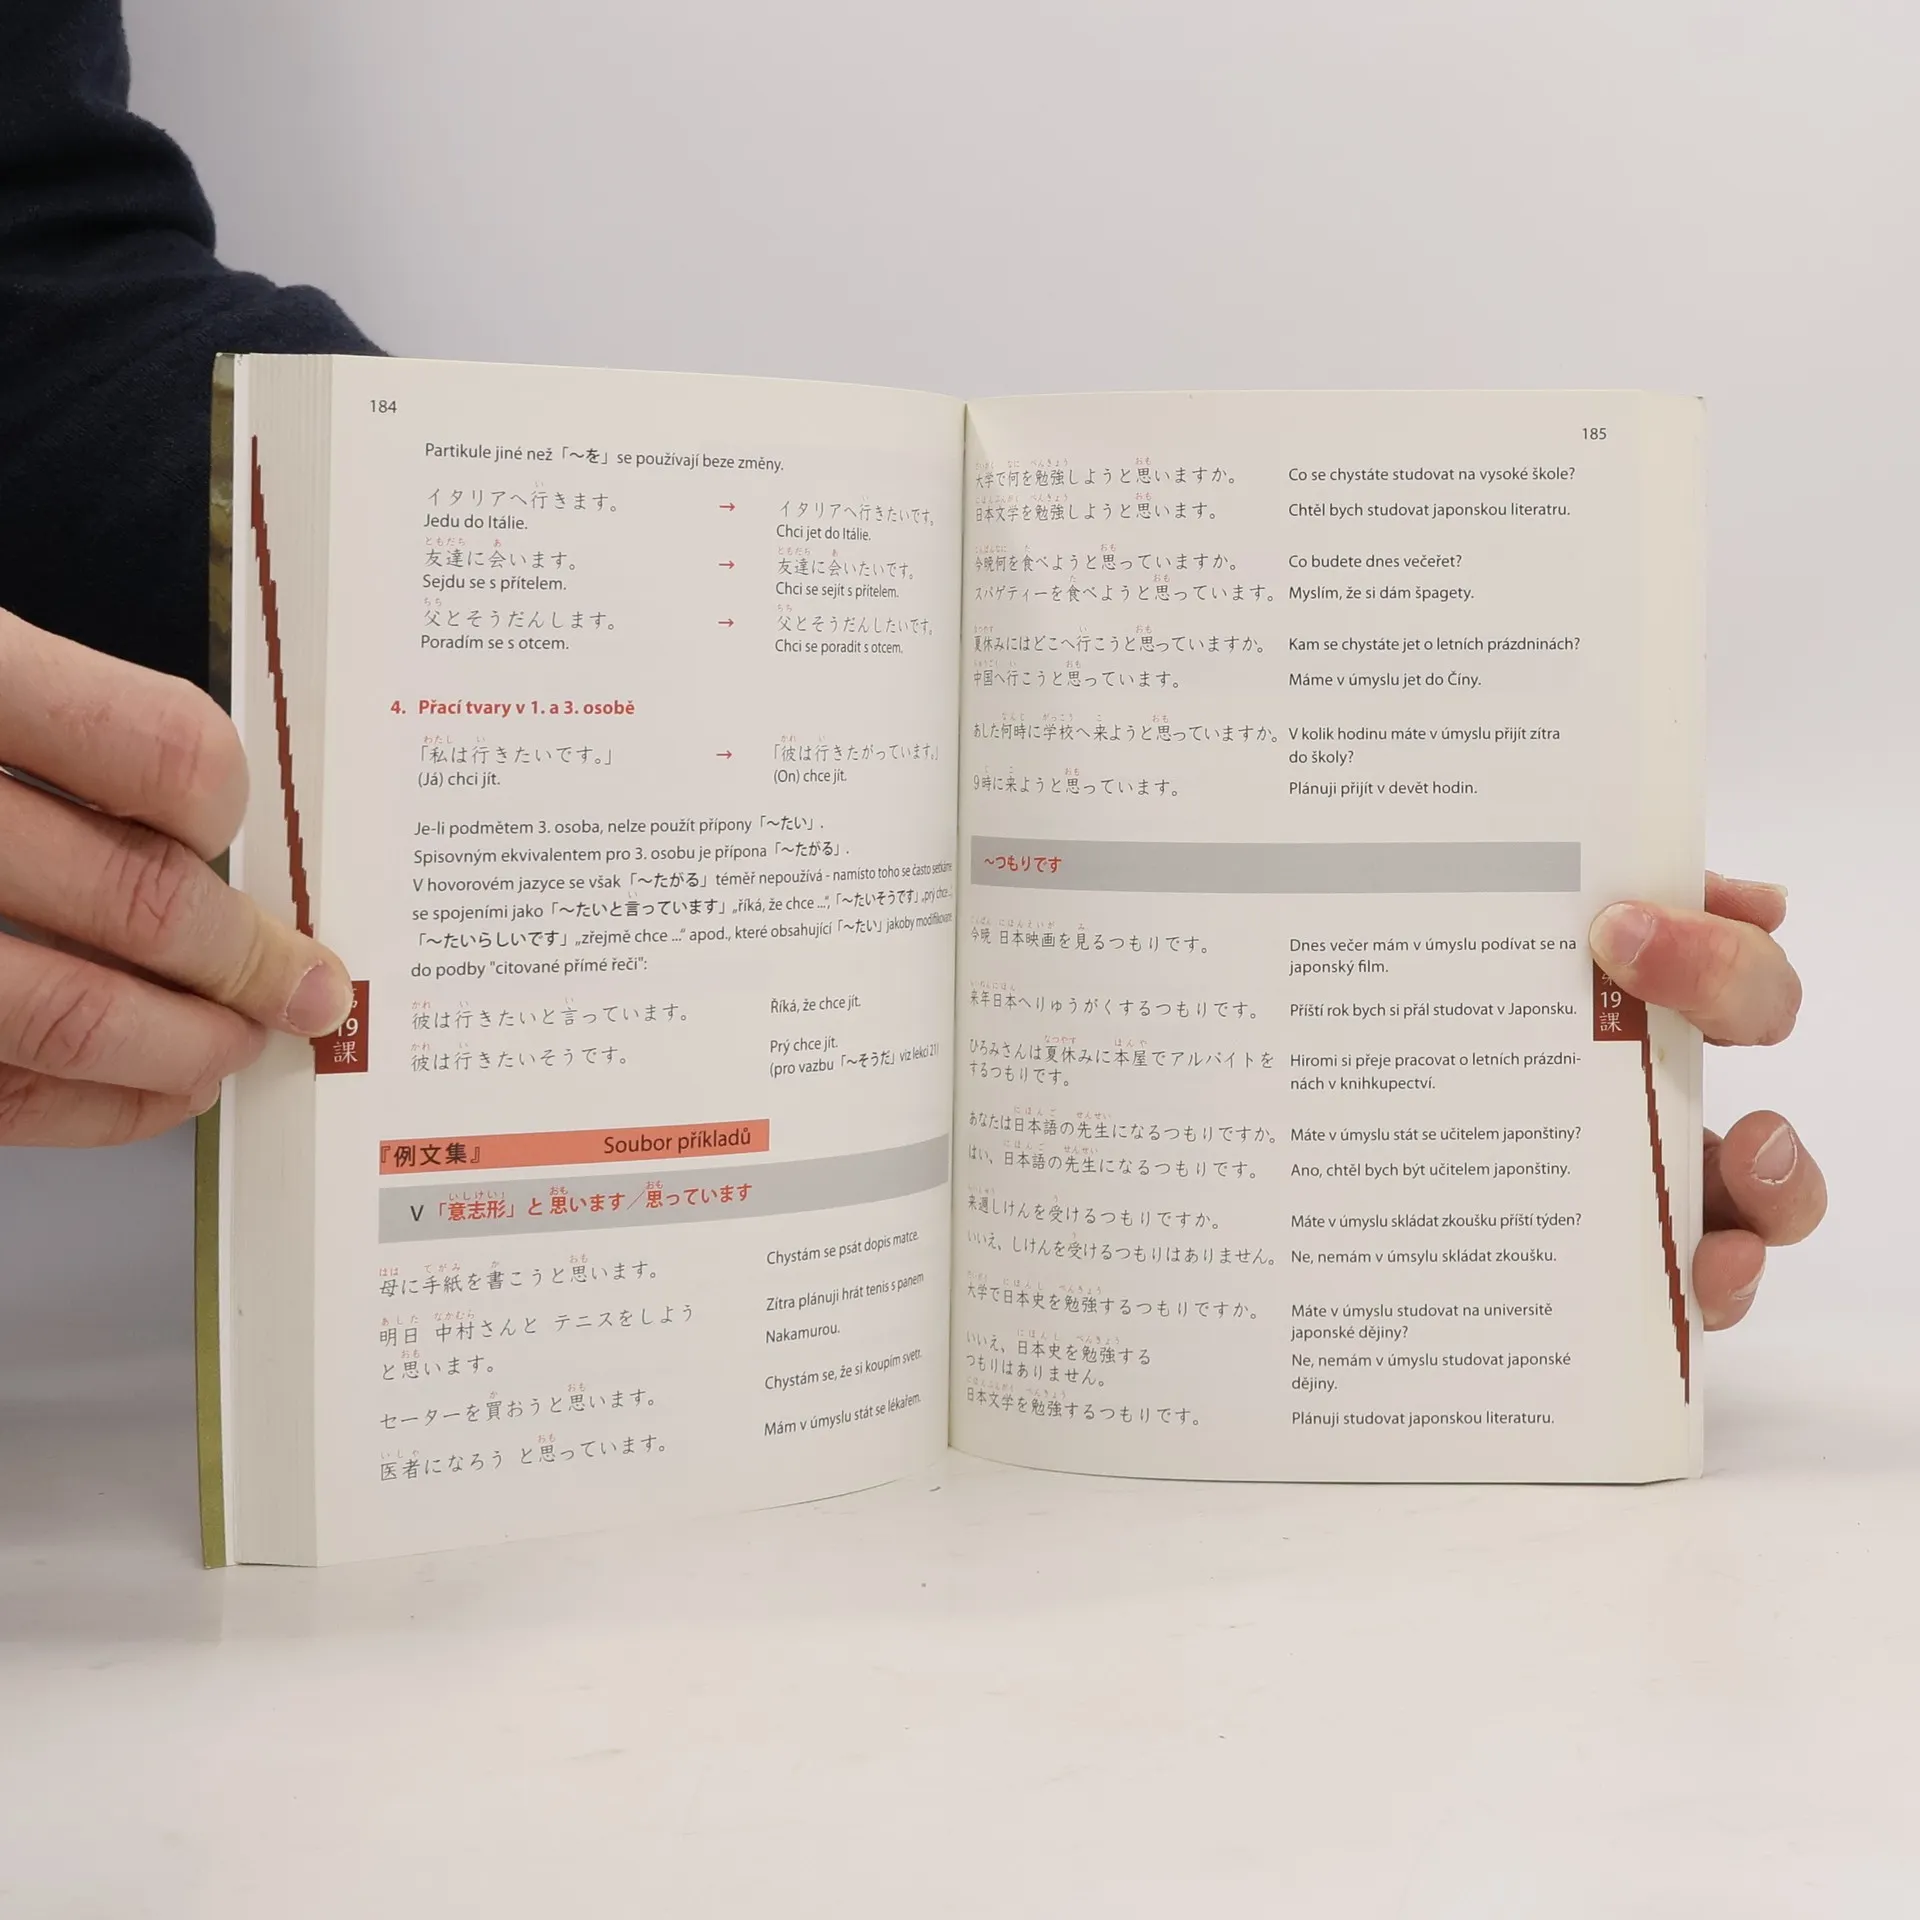 184
Partikule jiné než「～を」se používají beze změny.
イタリアへ行きます。 → イタリアへ行きたいです。
Jedu do Itálie. Chci jet do Itálie.
友達に会います。 → 友達に会いたいです。
Sejdu se s přítelem. Chci se sejít s přítelem.
父とそうだんします。 → 父とそうだんしたいです。
Poradím se s otcem. Chci se poradit s otcem.
4. Přací tvary v 1. a 3. osobě
「私は行きたいです。」 → 「彼は行きたがっています。」
(Já) chci jít. (On) chce jít.
Je-li podmětem 3. osoba, nelze použít přípony「～たい」.
Spisovným ekvivalentem pro 3. osobu je přípona「～たがる」.
V hovorovém jazyce se však「～たがる」téměř nepoužívá - namísto toho se často setkáme
se spojeními jako「～たいと言っています」„říká, že chce ...“, 「～たいそうです」„prý chce ...“,
「～たいらしいです」„zřejmě chce ...“ apod., které obsahující「～たい」jakoby modifikované
do podoby "citované přímé řeči":
彼は行きたいと言っています。 Říká, že chce jít.
彼は行きたいそうです。 Prý chce jít.
(pro vazbu「～そうだ」viz lekci 21)
『例文集』 Soubor příkladů
V「意志形」と思います／思っています
母に手紙を書こうと思います。 Chystám se psát dopis matce.
明日 中村さんと テニスをしよう Zítra plánuji hrát tenis s panem
と思います。 Nakamurou.
セーターを買おうと思います。 Chystám se, že si koupím svetr.
医者になろう と思っています。 Mám v úmyslu stát se lékařem.
19
課
185
大学で何を勉強しようと思いますか。 Co se chystáte studovat na vysoké škole?
日本文学を勉強しようと思います。 Chtěl bych studovat japonskou literatru.
今晩何を食べようと思っていますか。 Co budete dnes večeřet?
スパゲティーを食べようと思っています。 Myslím, že si dám špagety.
夏休みにはどこへ行こうと思っていますか。 Kam se chystáte jet o letních prázdninách?
中国へ行こうと思っています。 Máme v úmyslu jet do Číny.
あした何時に学校へ来ようと思っていますか。 V kolik hodinu máte v úmyslu přijít zítra
do školy?
9時に来ようと思っています。 Plánuji přijít v devět hodin.
～つもりです
今晩 日本映画を見るつもりです。 Dnes večer mám v úmyslu podívat se na
japonský film.
来年日本へりゅうがくするつもりです。 Příští rok bych si přál studovat v Japonsku.
ひろみさんは夏休みに本屋でアルバイトを Hiromi si přeje pracovat o letních prázdni-
するつもりです。 nách v knihkupectví.
あなたは日本語の先生になるつもりですか。 Máte v úmyslu stát se učitelem japonštiny?
はい、日本語の先生になるつもりです。 Ano, chtěl bych být učitelem japonštiny.
来週しけんを受けるつもりですか。 Máte v úmyslu skládat zkoušku příští týden?
いいえ、しけんを受けるつもりはありません。 Ne, nemám v úmsylu skládat zkoušku.
大学で日本史を勉強するつもりですか。 Máte v úmyslu studovat na universitě
japonské dějiny?
いいえ、日本史を勉強する Ne, nemám v úmyslu studovat japonské
つもりはありません。 dějiny.
日本文学を勉強するつもりです。 Plánuji studovat japonskou literaturu.
19
課